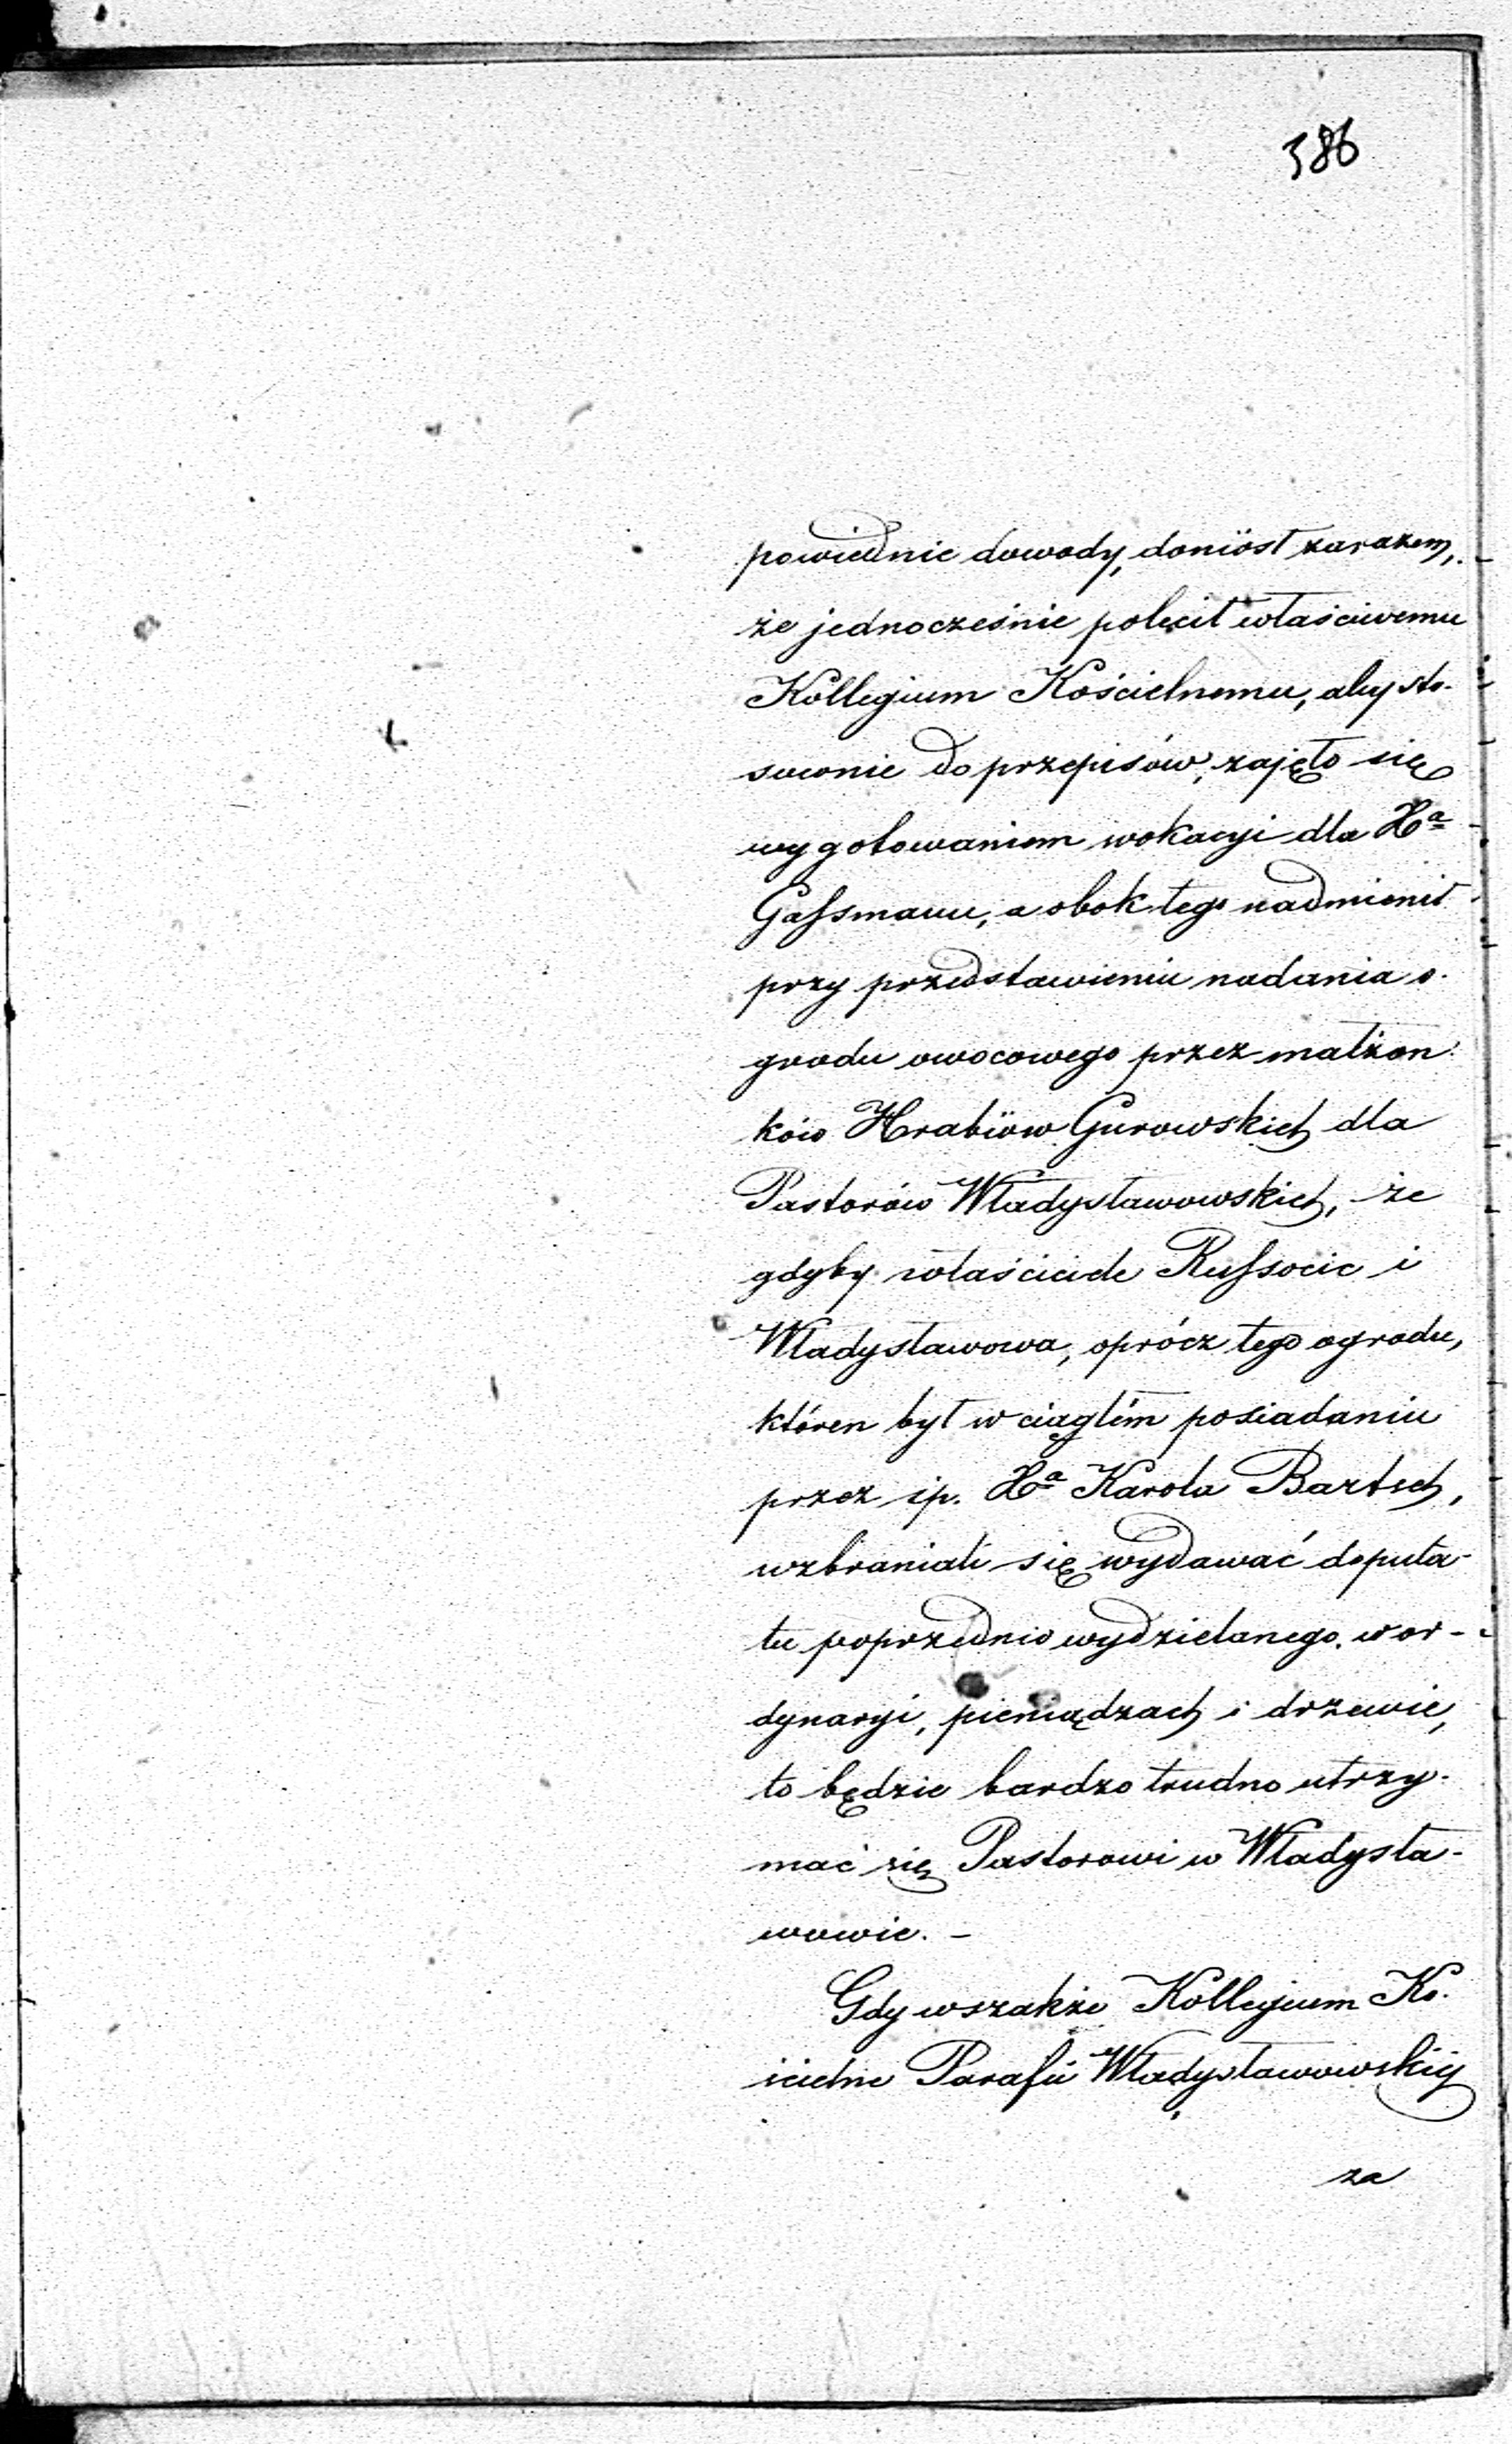 386
powiednie dowody, doniósł zarazem,
że jednocześnie polecił właściwemu
Kollegium Kościelnemu, aby sto-
sownie do przepisów, zajęło się
wygotowaniem wokacyi dla Xa
Gassmann, a obok tego nadmienił
przy przedstawieniu nadania o-
grodu owocowego przez małżon-
ków Hrabiów Gurowskich dla
Pastorów Władysławowskich, że
gdyby właściciele Russocic i
Władysławowa, oprócz tego ogrodu,
któren był w ciągłém posiadaniu
przez śp. Xa Karola Bartsch,
wzbraniali się wydawać deputa-
tu poprzednio wydzielanego w or-
dynaryi, pieniądzach i drzewie,
to będzie bardzo trudno utrzy-
mać się Pastorowi w Władysła-
wowie. –
Gdy wszakże Kollegium Ko-
ścielne Parafii Władysławowskiéj
za